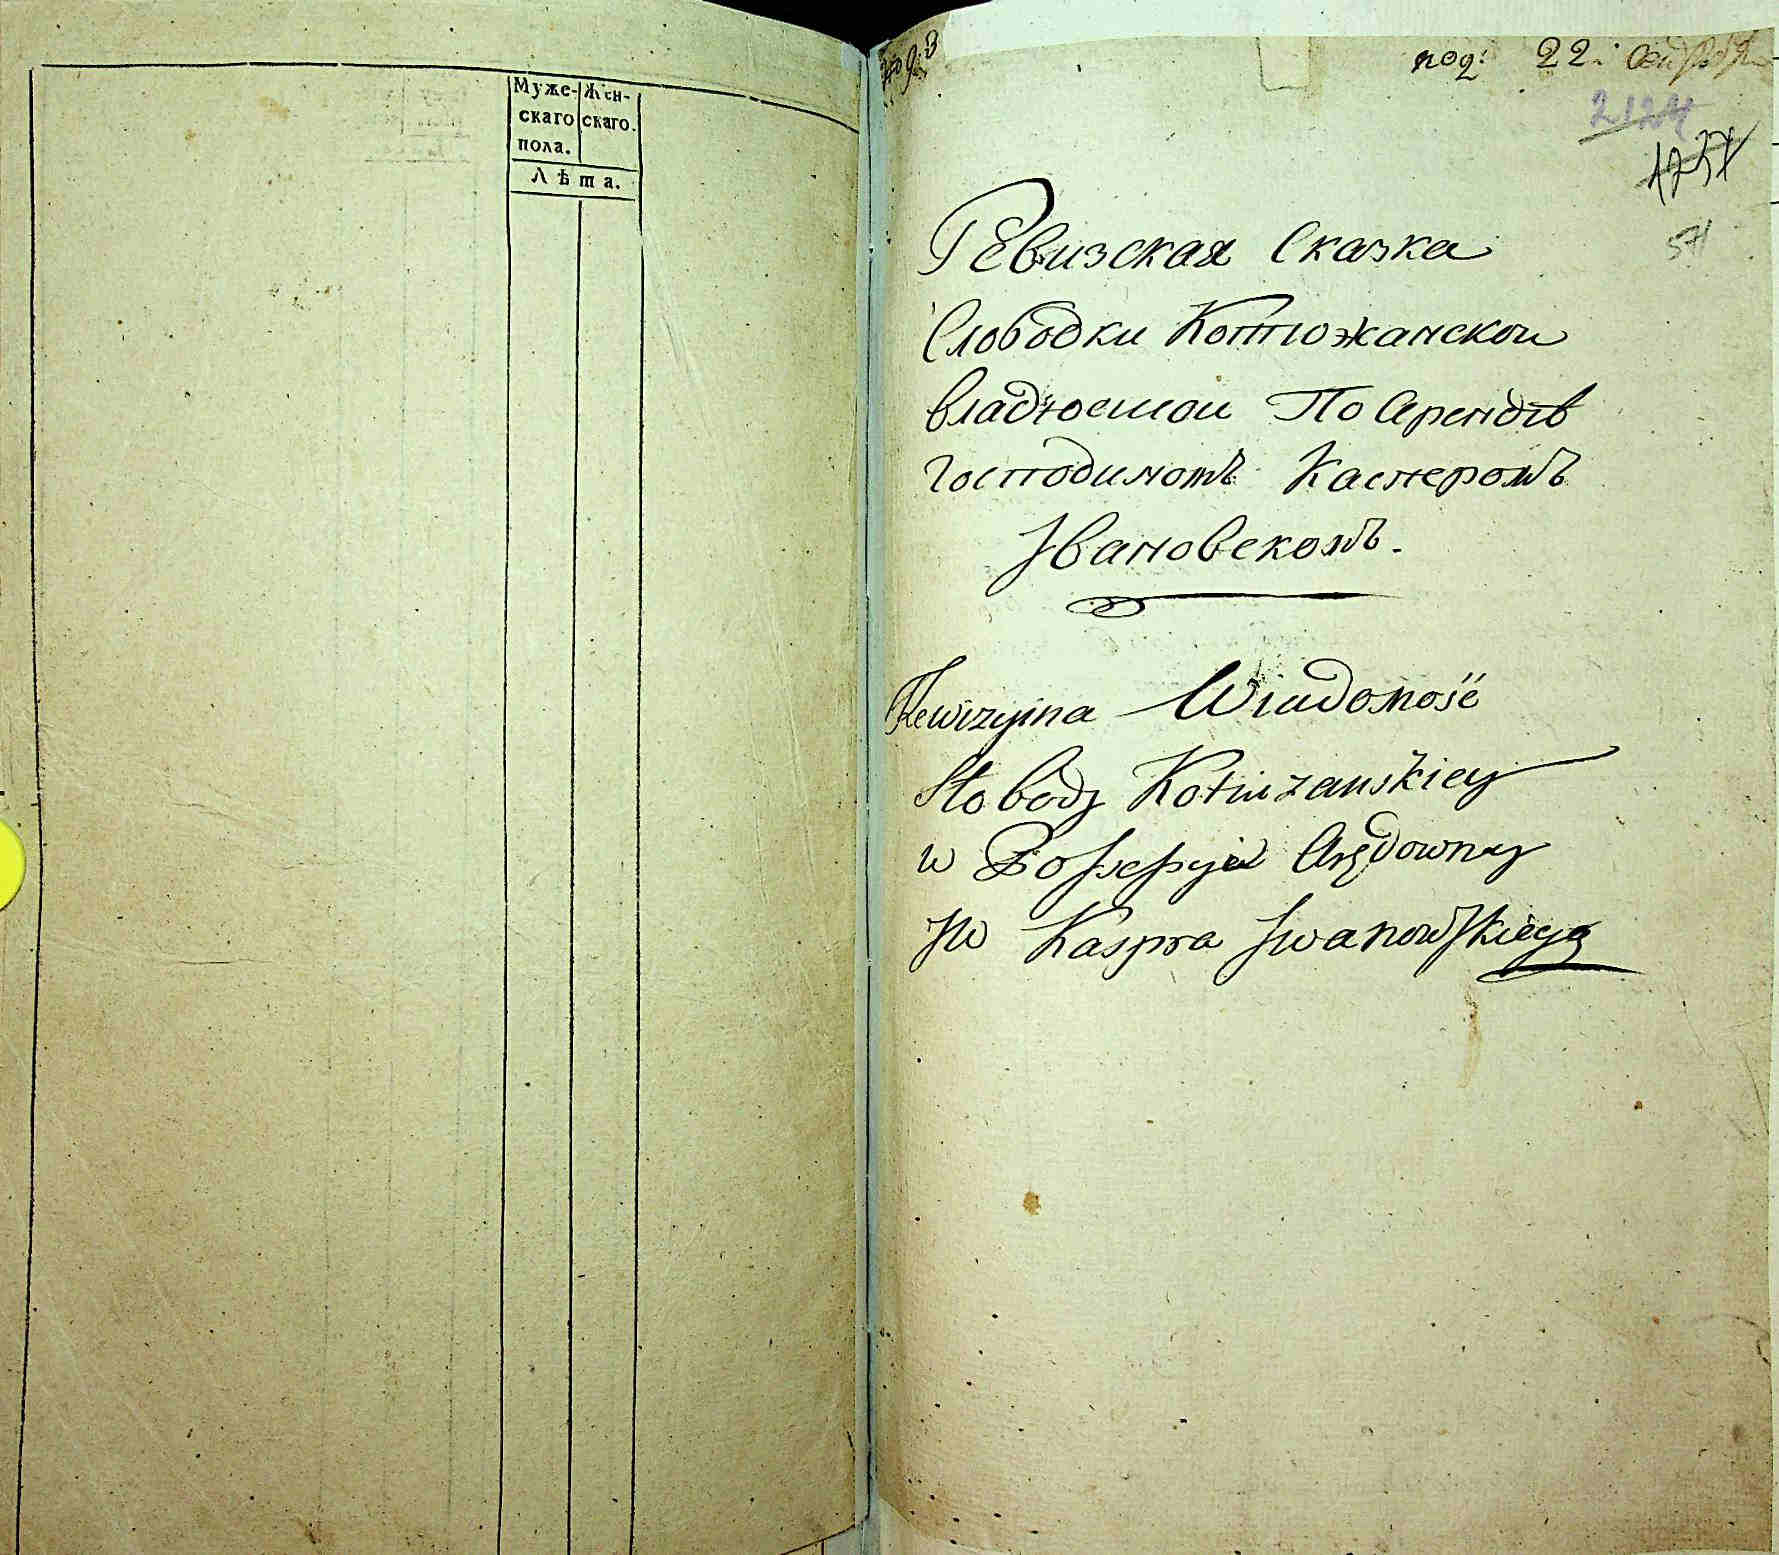 Муже- Жен-
скаго скаго.
пола.
Лѣта.
под: 22:
2124
1237
571
Ревизская Сказка
Слободки Котюжанскои
владѣемои По Арендѣ
господиномъ Касперомъ
Ивановскомъ.
Rewizyina Wiadomość
Słobody Kotiużanskiey
w Possessyi Arędowney
JW Kaspra Iwanowskiego